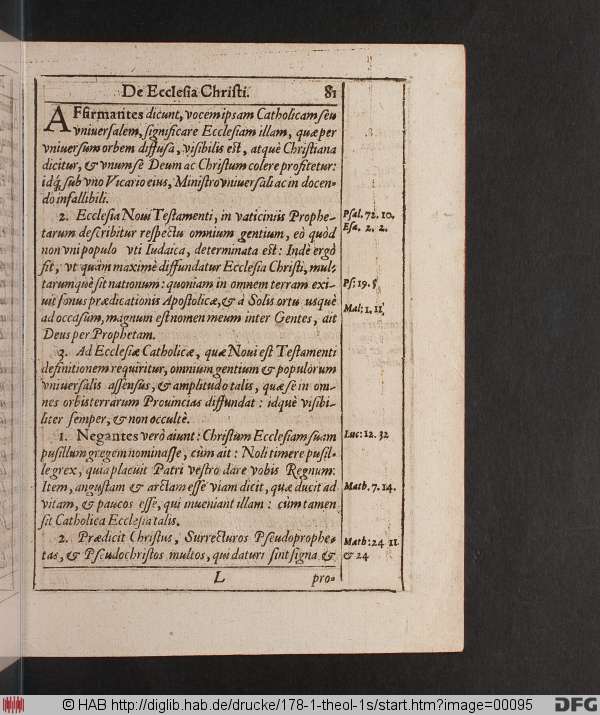 De Ecclesia Christi. 81
AFfirmantes dicunt, vocem ipsam Catholicam seu
vniuersalem, significare Ecclesiam illam, quæ per
vniuersum orbem diffusa, visibilis est, atquè Christiana
dicitur, & vnum se Deum ac Christum colere profitetur:
idq́; sub vno Vicario eius, Ministro vniuersali ac in docen-
do infallibili.
2. Ecclesia Noui Testamenti, in vaticiniis Prophe-
tarum describitur respectu omnium gentium, eò quòd
non vni populo vti Iudaica, determinata est: Indè ergò
fit, vt quàm maximè diffundatur Ecclesia Christi, mul-
tarumquè sit nationum: quoniam in omnem terram exi-
uit sonus prædicationis Apostolicæ, & à Solis ortu usquè
ad occasum, magnum est nomen meum inter Gentes, ait
Deus per Prophetam.
3. Ad Ecclesiæ Catholicæ, quæ Noui est Testamenti
definitionem requiritur, omnium gentium & populorum
vniuersalis assensus, & amplitudo talis, quæ se in om-
nes orbis terrarum Prouincias diffundat: idquè visibi-
liter semper, & non occultè.
1. Negantes verò aiunt: Christum Ecclesiam suam
pusillum gregem nominasse, cùm ait: Noli timere pusil-
le grex, quia placuit Patri vestro dare vobis Regnum:
Item, angustam & arctam esse viam dicit, quæ ducit ad
vitam, & paucos esse, qui inueniant illam: cùm tamen
sit Catholica Ecclesia talis.
2. Prædicit Christus, Surrecturos Pseudoprophe-
tas, & Pseudochristos multos, qui daturi sint signa &
L pro-
Psal. 72. 10.
Esa. 2. 2.
Ps: 19. 5
Mal: 1. 11
Luc: 12. 32
Math. 7. 14.
Math: 24 11
& 24
© HAB http://diglib.hab.de/drucke/178-1-theol-1s/start.htm?image=00095
DFG